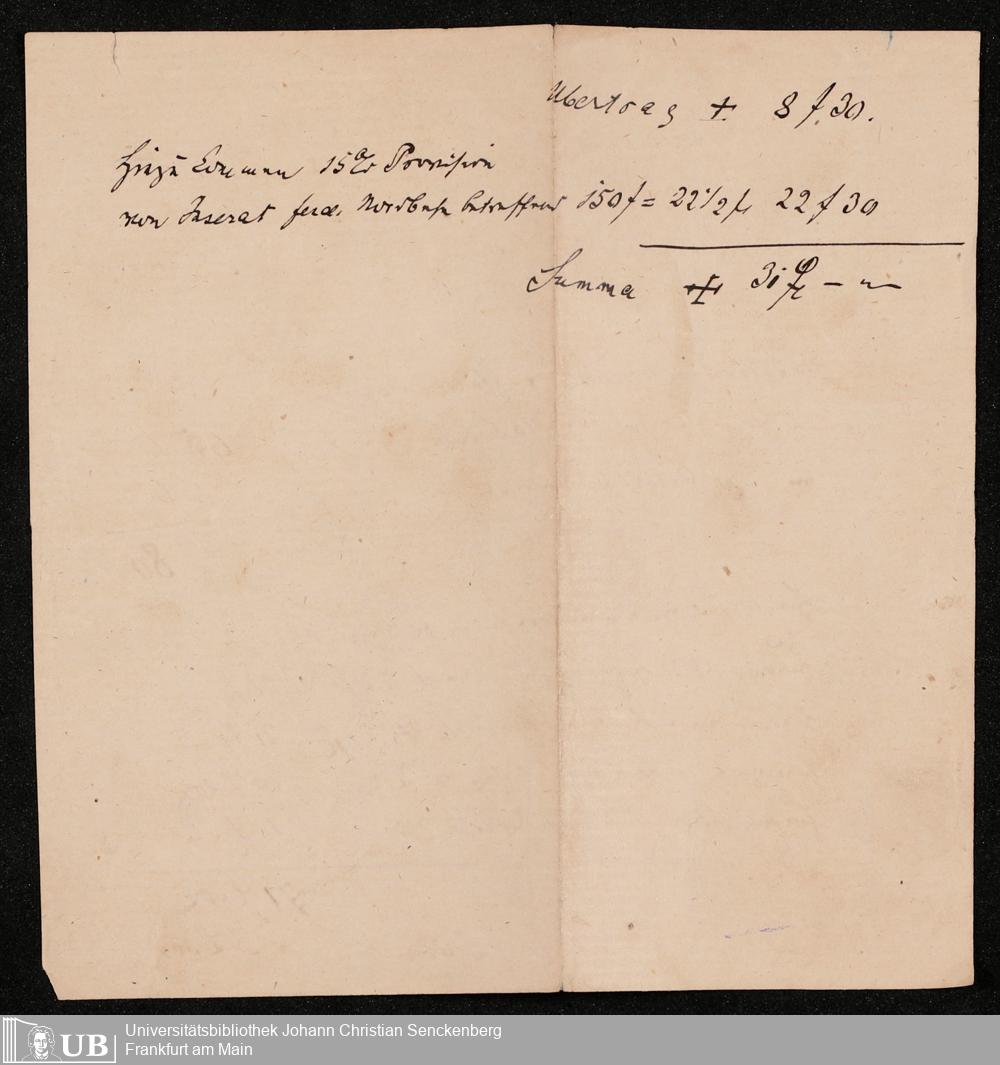 Übertrag + 8 f. 30.
Hinzu kommen 15% Provision
von Inserat ferd. Nordbahn betreffend 150 f = 22 1/2 f 22 f 30
Summa + 31 f — "—
UB
Universitätsbibliothek Johann Christian Senckenberg
Frankfurt am Main